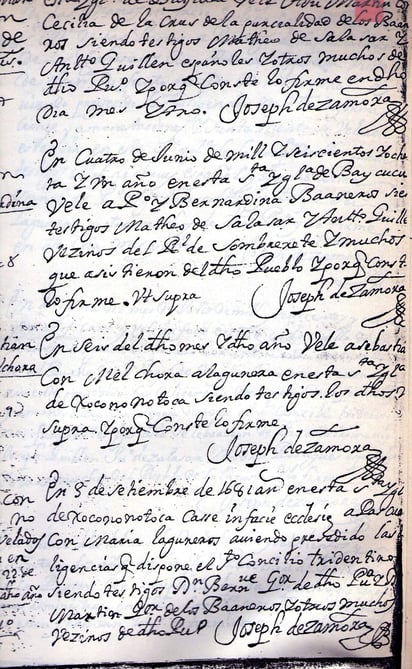 Cecilia de la Cruz de la parcialidad de los Baa
neros siendo testigos Matheo de Salasar Y
Antto Guillen españoles Y otros muchos de
dho Puo Y porq Conste lo firme en dho
Dia mes Y año. Joseph de Zamora
En Cuatro de Junio de mill Y seiscientos Y oche
ta Y un año en esta sta Ygla de Baycucu
Vele a Po Y Bernardina Baaneros sie
testigos Matheo de Salasar Y Antto Guille
Vezinos del Rl de Sombrerete Y muchos
que asistieron del dho Pueblo Y porq Conste
lo firme. Vt supra Joseph de Zamora
En seis del dho mes Y dho año Vele a sebastia
Con Melchora a lagunera en esta sta Ygla
de Xoconotoca siendo testigos los dhos
supra Y porq Conste lo firme
Joseph de Zamora
En 5 de setiembre de 1681 an en esta sta Ygl
de Xoconotoca Casse in facie ecclesie a
Con Maria laguneros auiendo presedido las
ligencias q dispone el sto Concilio tridentino
siendo testigos Dn Bernue Gor de dho Puo Y
Martin Gor de los Baaneros Y otros mucho
Vezinos de dho Puo Joseph de Zamora